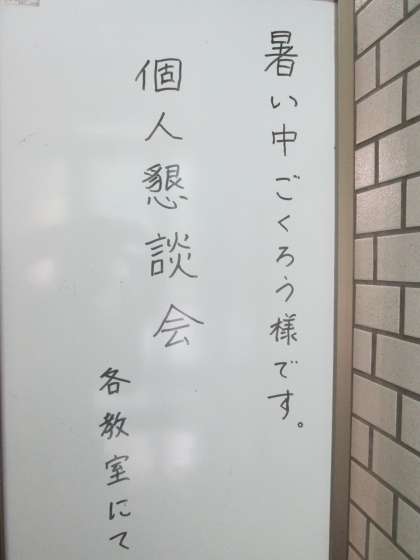 暑い中ごくろう様です。
個人懇談会
各教室にて